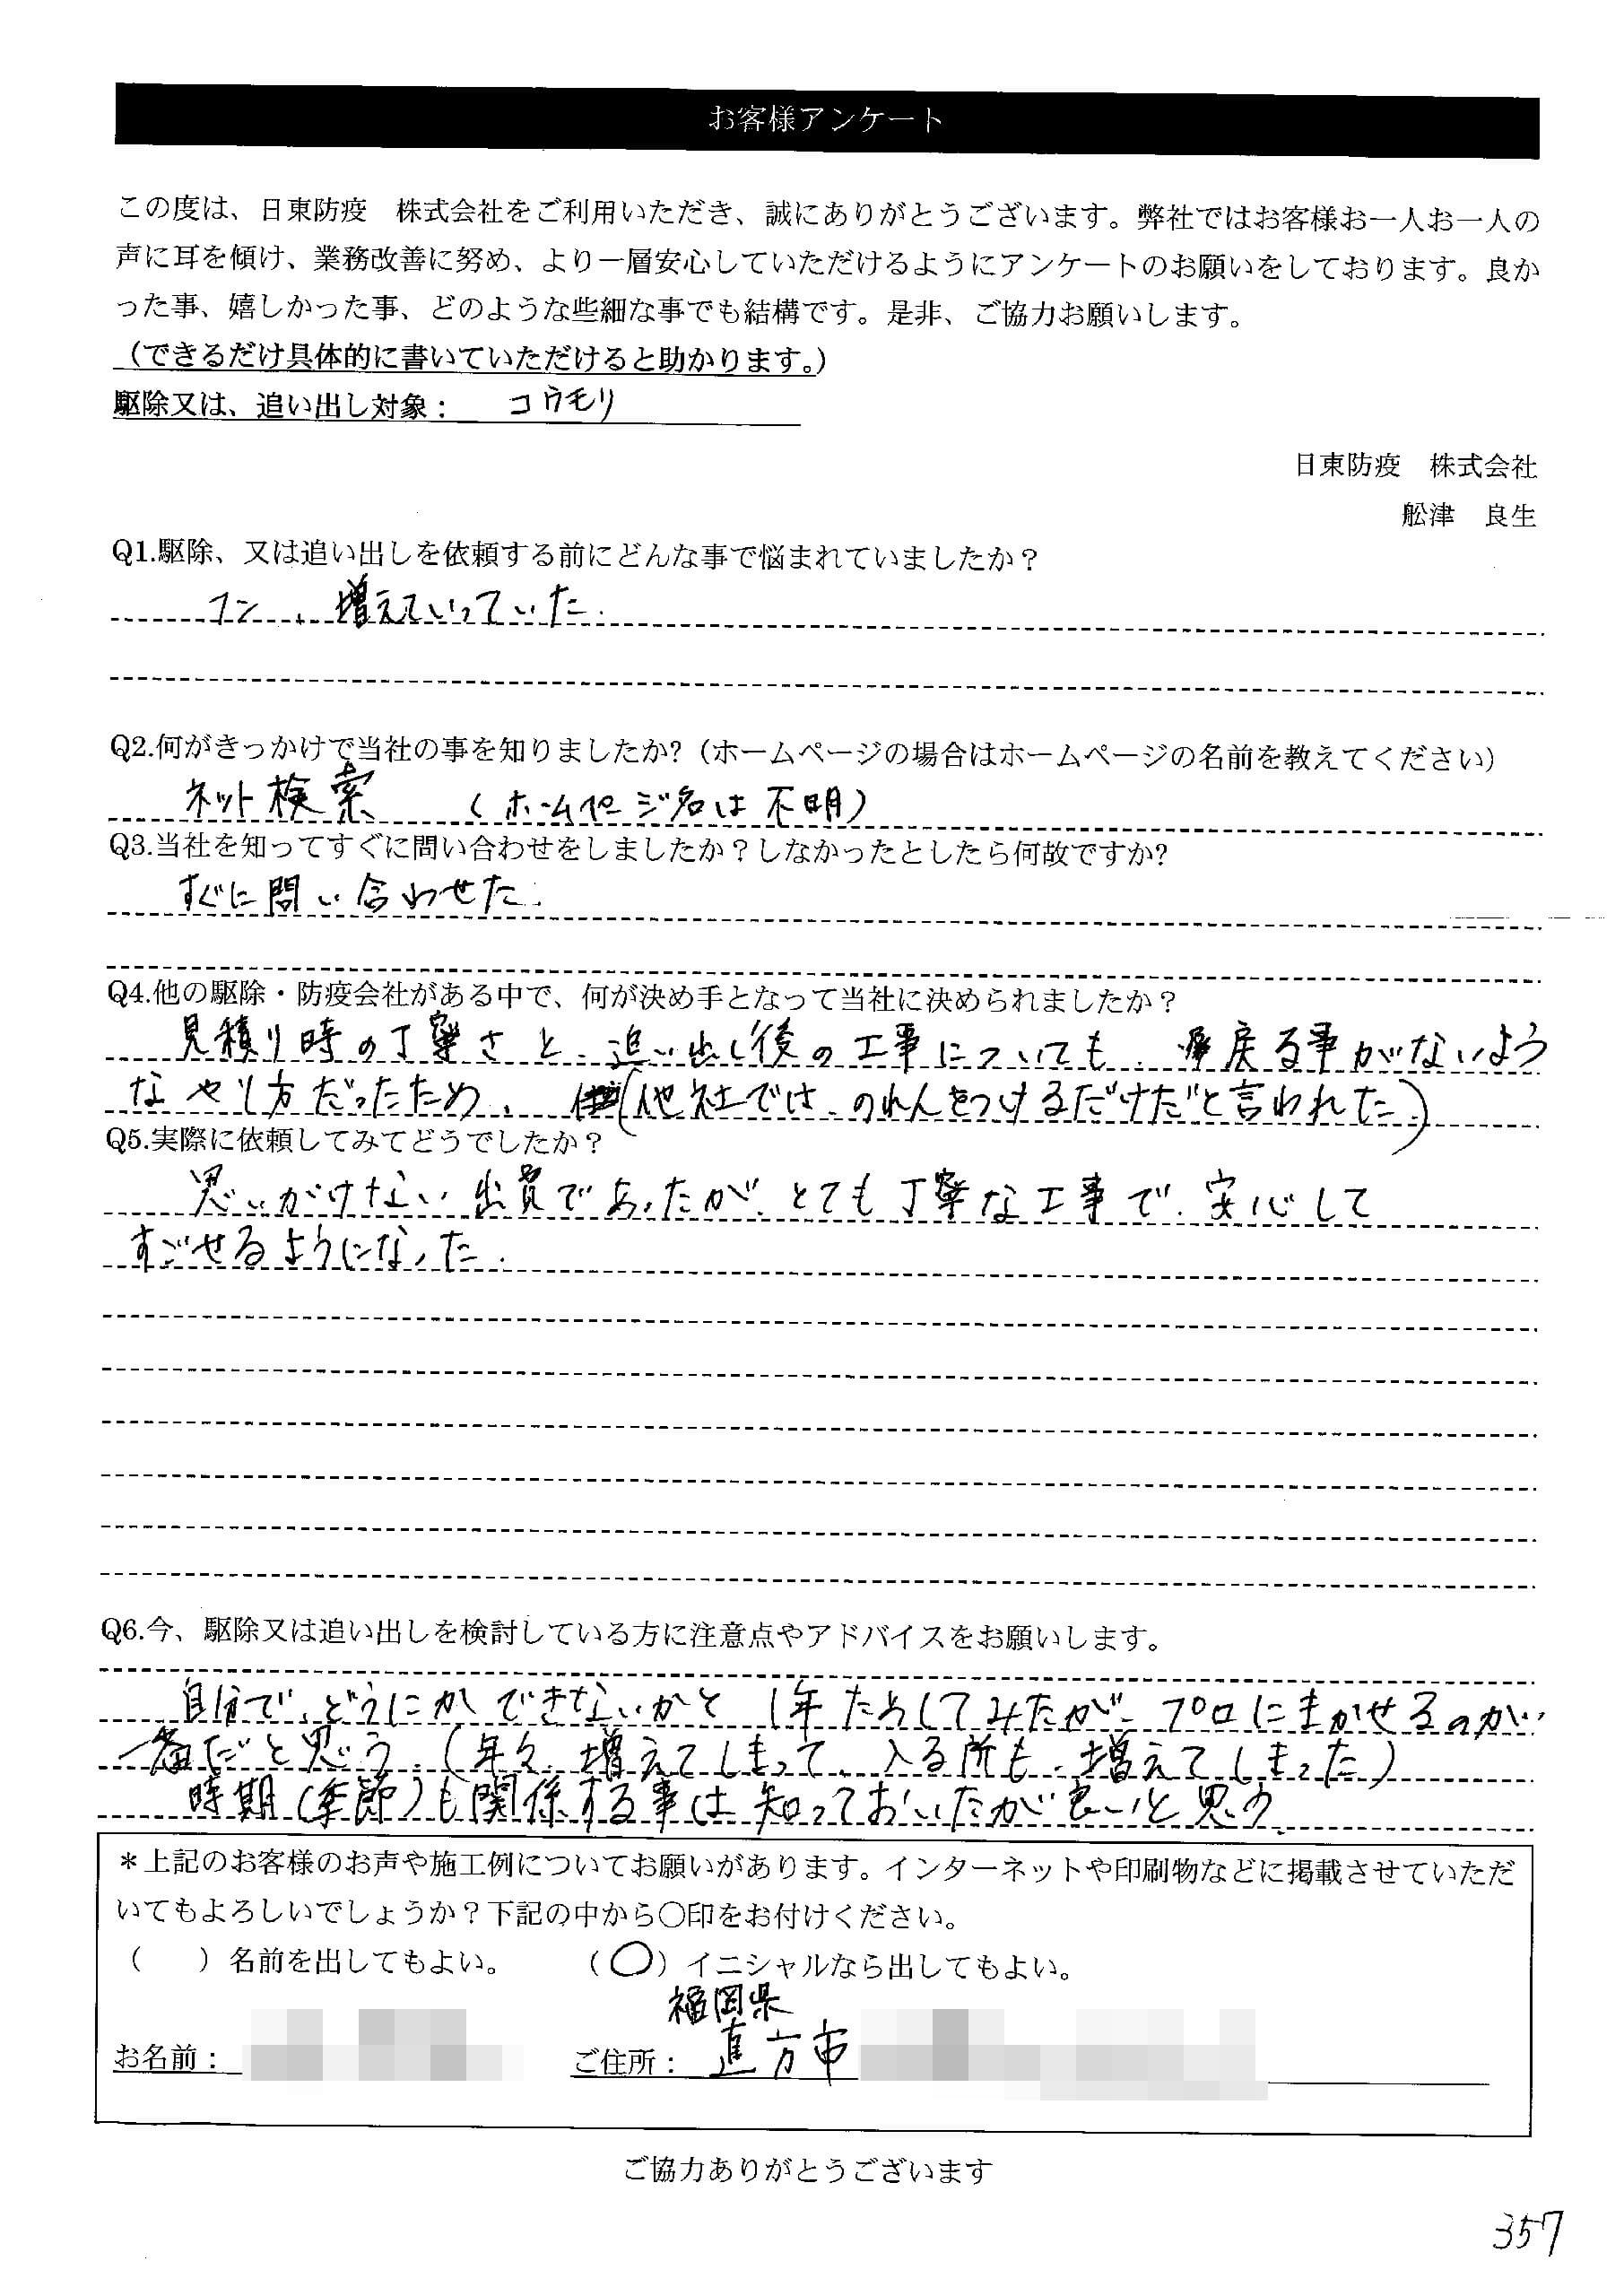 お客様アンケート
この度は、日東防疫　株式会社をご利用いただき、誠にありがとうございます。弊社ではお客様お一人お一人の
声に耳を傾け、業務改善に努め、より一層安心していただけるようにアンケートのお願いをしております。良か
った事、嬉しかった事、どのような些細な事でも結構です。是非、ご協力お願いします。
（できるだけ具体的に書いていただけると助かります。）
駆除又は、追い出し対象：　コウモリ
日東防疫　株式会社
舩津　良生
Q1.駆除、又は追い出しを依頼する前にどんな事で悩まれていましたか？
フン、増えていっていた.
Q2.何がきっかけで当社の事を知りましたか?（ホームページの場合はホームページの名前を教えてください）
ネット検索　（ホームページ名は不明）
Q3.当社を知ってすぐに問い合わせをしましたか？しなかったとしたら何故ですか?
すぐに問い合わせた.
Q4.他の駆除・防疫会社がある中で、何が決め手となって当社に決められましたか？
見積り時の丁寧さと、追い出し後の工事についても、戻る事がないよう
なやり方だったため、（他社では、のれんをつけるだけだと言われた.）
Q5.実際に依頼してみてどうでしたか？
思いがけない出費であったが、とても丁寧な工事で、安心して
すごせるようになった.
Q6.今、駆除又は追い出しを検討している方に注意点やアドバイスをお願いします。
自分で、どうにかできないかと1年ためしてみたが、プロにまかせるのが
一番だと思う.（年々、増えてしまって、入る所も、増えてしまった）
時期（季節）も関係する事は知っておいたが良いと思う.
＊上記のお客様のお声や施工例についてお願いがあります。インターネットや印刷物などに掲載させていただ
いてもよろしいでしょうか？下記の中から〇印をお付けください。
（　）名前を出してもよい。　（〇）イニシャルなら出してもよい。
福岡県
お名前：　ご住所：　直方市
ご協力ありがとうございます
357